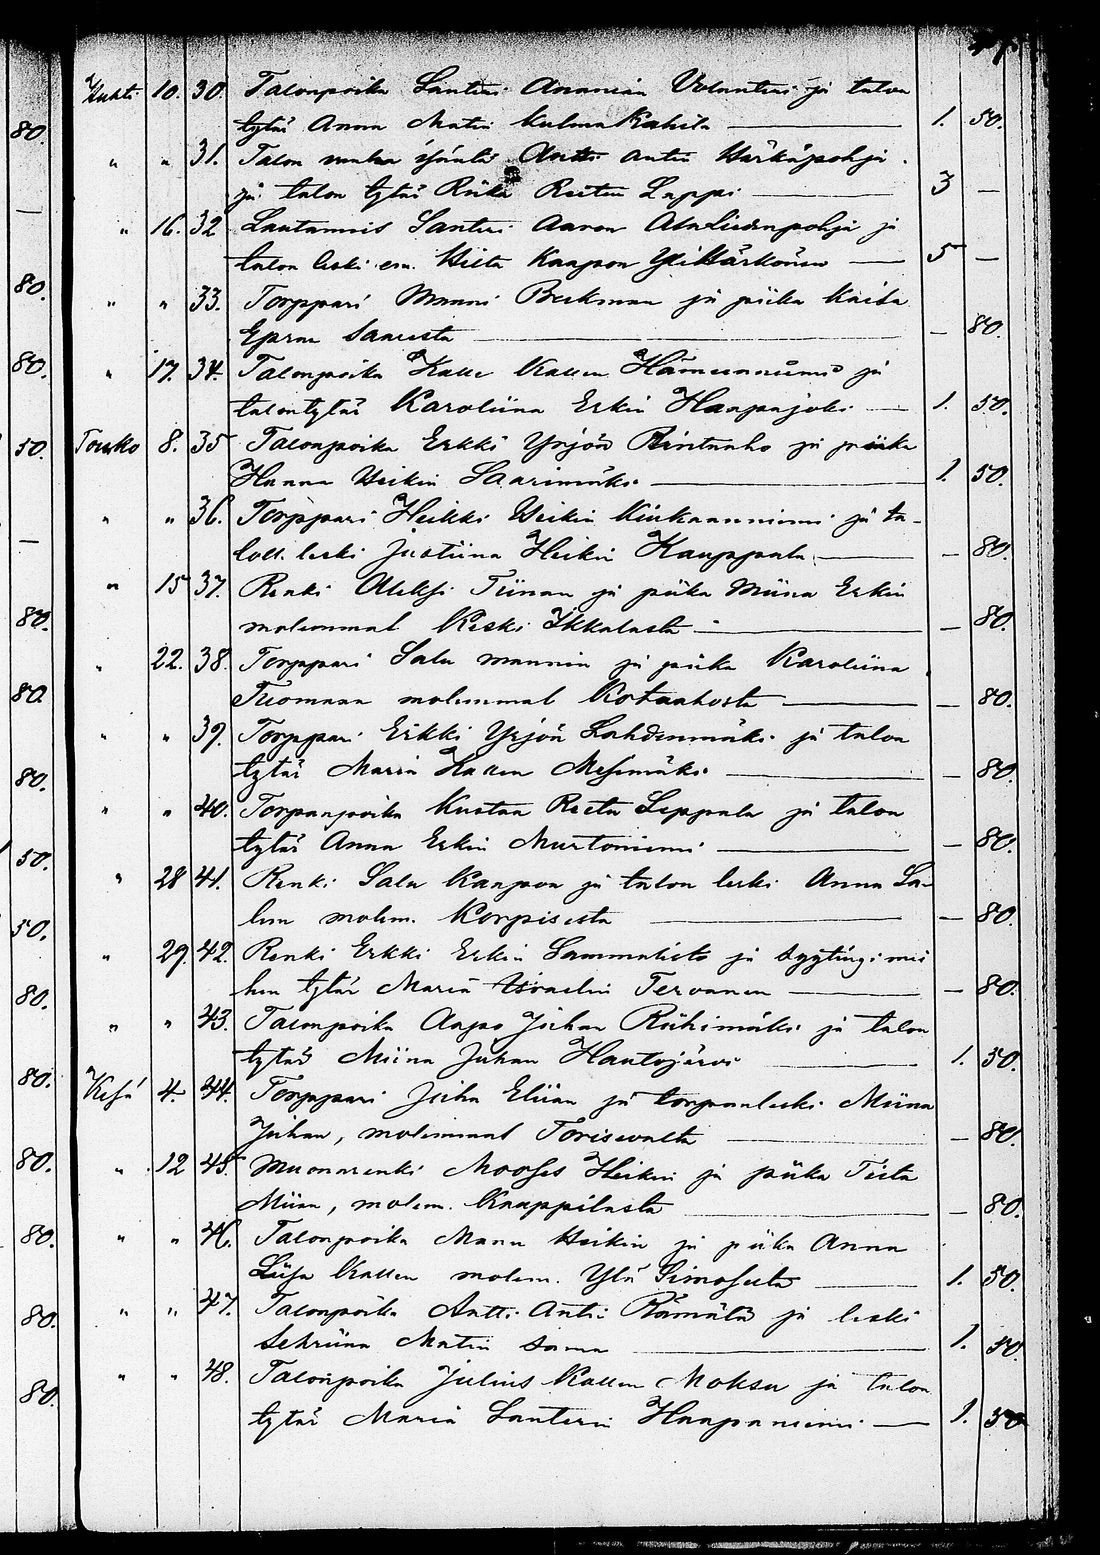 Huhti 10. 30. Talonpoika Santeri Ananian Volanteri ja talon
tytär Anna Matin Kulmakahila 1. 50.
" " 31. Talon vanha isäntä Antti Antin Härkäpohja
ja talon tytär Riika Reetu Lappi 3 —
" 16. 32 Lautamies Santeri Aaron Alaliedenpohja ja
talon leski em. Hilta Kaapon Yli Härkönen 5 —
" " 33. Torppari Manni Beckman ja piika Kaisa
Epram Saaresta — 80.
" 17. 34. Talonpoika Kalle Kallen Hämeenniemi ja
talontytär Karoliina Erkin Haapajoki 1. 50.
Touko 8. 35 Talonpoika Erkki Yrjön Rintaaho ja piika
Hanna Heikin Saarimäki 1. 50.
" " 36. Torppari Heikki Heikin Kiukaanniemi ja ta-
lon leski Justiina Heikin Kauppala — 80.
" 15 37. Renki Aleksi Tiinan ja piika Miina Erkin
molemmat Keski Ikkalasta — 80.
" 22. 38. Torppari Salu mannin ja piika Karoliina
Tuomaan molemmat Kotaahosta — 80.
" " 39. Torppari Erkki Yrjön Lahdenmäki ja talon
tytär Maria Kallen Mesimäki — 80.
" " 40. Torpanpoika Kustaa Reeta Leppala ja talon
tytär Anna Erkin Murtoniemi — 80.
" 28 41. Renki Salu Kaapon ja talon leski Anna Sa-
lun molem. Korpisesta — 80.
" 29. 42. Renki Erkki Erkin Sammalisto ja syytingi mie
hen tytär Maria Israelin Tervonen — 80.
" " 43. Talonpoika Aapo Juhan Riihimäki ja talon
tytär Miina Juhan Hautojärvi 1. 50.
Kesä 4. 44. Torppari Juha Eliian ja torpanleski Miina
Juhan, molemmat Torisevalta — 80.
" 12 45 Muonarenki Mooses Heikin ja piika Tiita
Miina, molem. Kaappilasta — 80.
" " 46. Talonpoika Manu Heikin ja piika Anna
Liisa Kallen molem. Ylä Simosesta 1. 50.
" " 47. Talonpoika Antti Antin Rämälä ja leski
Sehriina Matin sama 1. 50.
" " 48. Talonpoika Julius Kallen Moksu ja talon
tytär Maria Santerin Haapaniemi 1. 50